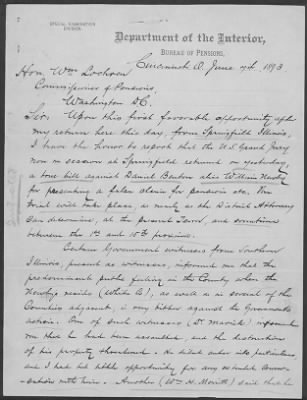 SPECIAL EXAMINATION
DIVISION.
Department of the Interior,
BUREAU OF PENSIONS,
Cincinnati O. June 7th 1893
Hon. Wm Lochren
Commissioner of Pensions,
Washington D.C.
Sir: Upon this first favorable opportunity after
my return here this day, from Springfield Illinois,
I have the honor to report that the U.S. Grand Jury
now in session at Springfield returned on yesterday,
a true bill against Daniel Benton alias William Newby
for presenting a false claim for pension etc. The
trial will take place, as nearly as the District Attorney
can determine, at the present Term, and sometime
between the 1st and 15th proximo.
Certain Government witnesses from Southern
Illinois, present as witnesses, informed me that the
predominant public feeling in the County where the
Newbys reside (White Co), as well as in several of the
Counties adjacent, is very bitter against the Government's
action. One of such witnesses (Dr. ) informed
me that he had been assaulted, and the destruction
of his property threatened. He
and I had but little opportunity for any extended conver-
sations with him. Another (Wm H. Merritt) said that he